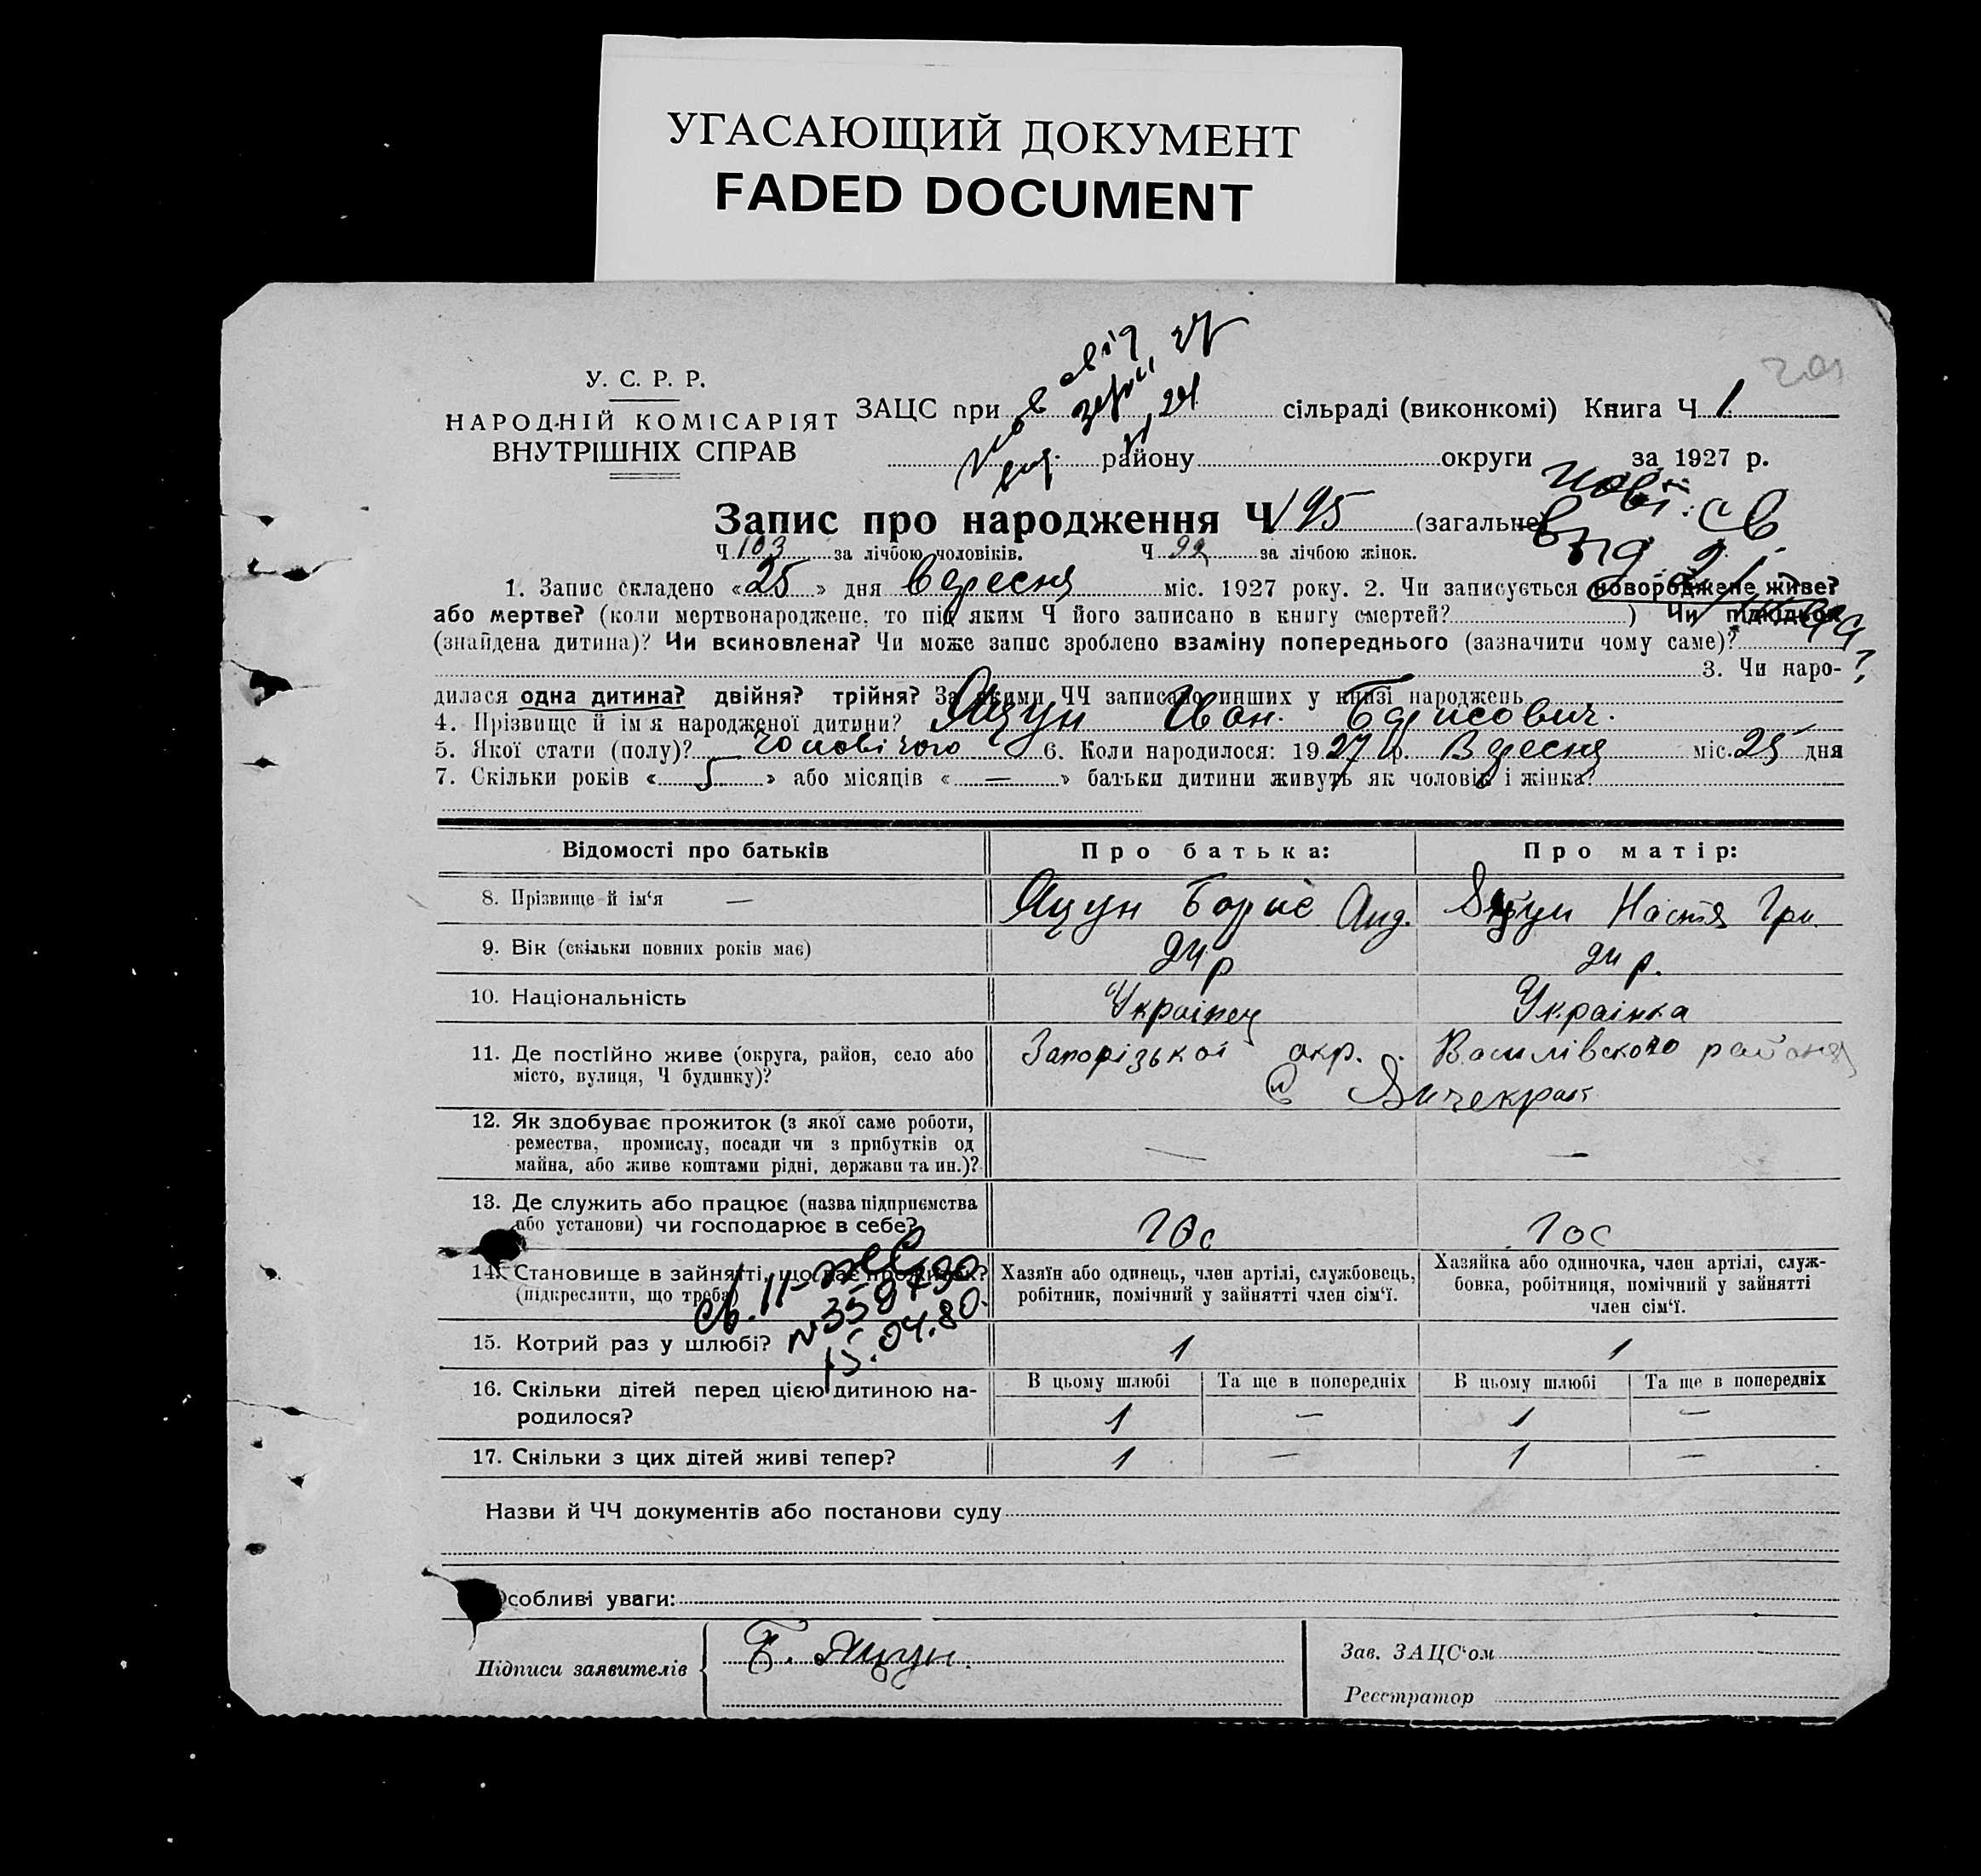 УГАСАЮЩИЙ ДОКУМЕНТ
FADED DOCUMENT
У. С. Р. Р.
НАРОДНІЙ КОМІСАРІЯТ
ВНУТРІШНІХ СПРАВ
ЗАЦС при сільраді (виконкомі) Книга Ч 1
району округи за 1927 р.
Запис про народження Ч 195 (загальне)
Ч 103 за лічбою чоловіків. Ч 92 за лічбою жінок.
1. Запис складено «25» дня вересня міс. 1927 року. 2. Чи записується новороджене живе?
або мертве? (коли мертвонароджене, то під яким Ч його записано в книгу смертей? ) Чи підкидьок
(знайдена дитина)? Чи всиновлена? Чи може запис зроблено взаміну попереднього (зазначити чому саме)?
3. Чи наро-
дилася одна дитина? двійня? трійня? За якими ЧЧ записано инших у книзі народжень
4. Прізвище й ім'я народженої дитини? Яцун Іван Борисович.
5. Якої стати (полу)? чоловічого 6. Коли народилося: 1927 р. Вересня міс. 25 дня
7. Скільки років «5» або місяців «—» батьки дитини живуть як чоловік і жінка?
Відомості про батьків Про батька: Про матір:
8. Прізвище й ім'я — Яцун Борис Анд. Яцун Настя Гри.
9. Вік (скільки повних років має) 24 р 24 р.
10. Національність Українец Українка
11. Де постійно живе (округа, район, село або Запорізької окр. Василівского района
місто, вулиця, Ч будинку)? с
12. Як здобуває прожиток (з якої саме роботи,
ремества, промислу, посади чи з прибутків од
майна, або живе коштами рідні, держави та ин.)? — —
13. Де служить або працює (назва підприємства
або установи) чи господарює в себе? Гос Гос
14. Становище в зайнятті, що дає прожиток?
(підкреслити, що треба)
Хазяїн або одинець, член артілі, службовець,
робітник, помічний у зайнятті член сім'ї.
Хазяйка або одиночка, член артілі, служ-
бовка, робітниця, помічний у зайнятті
член сім'ї.
15.04.80.
15. Котрий раз у шлюбі? 1 1
16. Скільки дітей перед цією дитиною на-
родилося?
В цьому шлюбі Та ще в попередніх В цьому шлюбі Та ще в попередніх
1 — 1 —
17. Скільки з цих дітей живі тепер? 1 — 1 —
Назви й ЧЧ документів або постанови суду
Особливі уваги:
Підписи заявителів Б. Яцун.
Зав. ЗАЦС'ом
Реєстратор